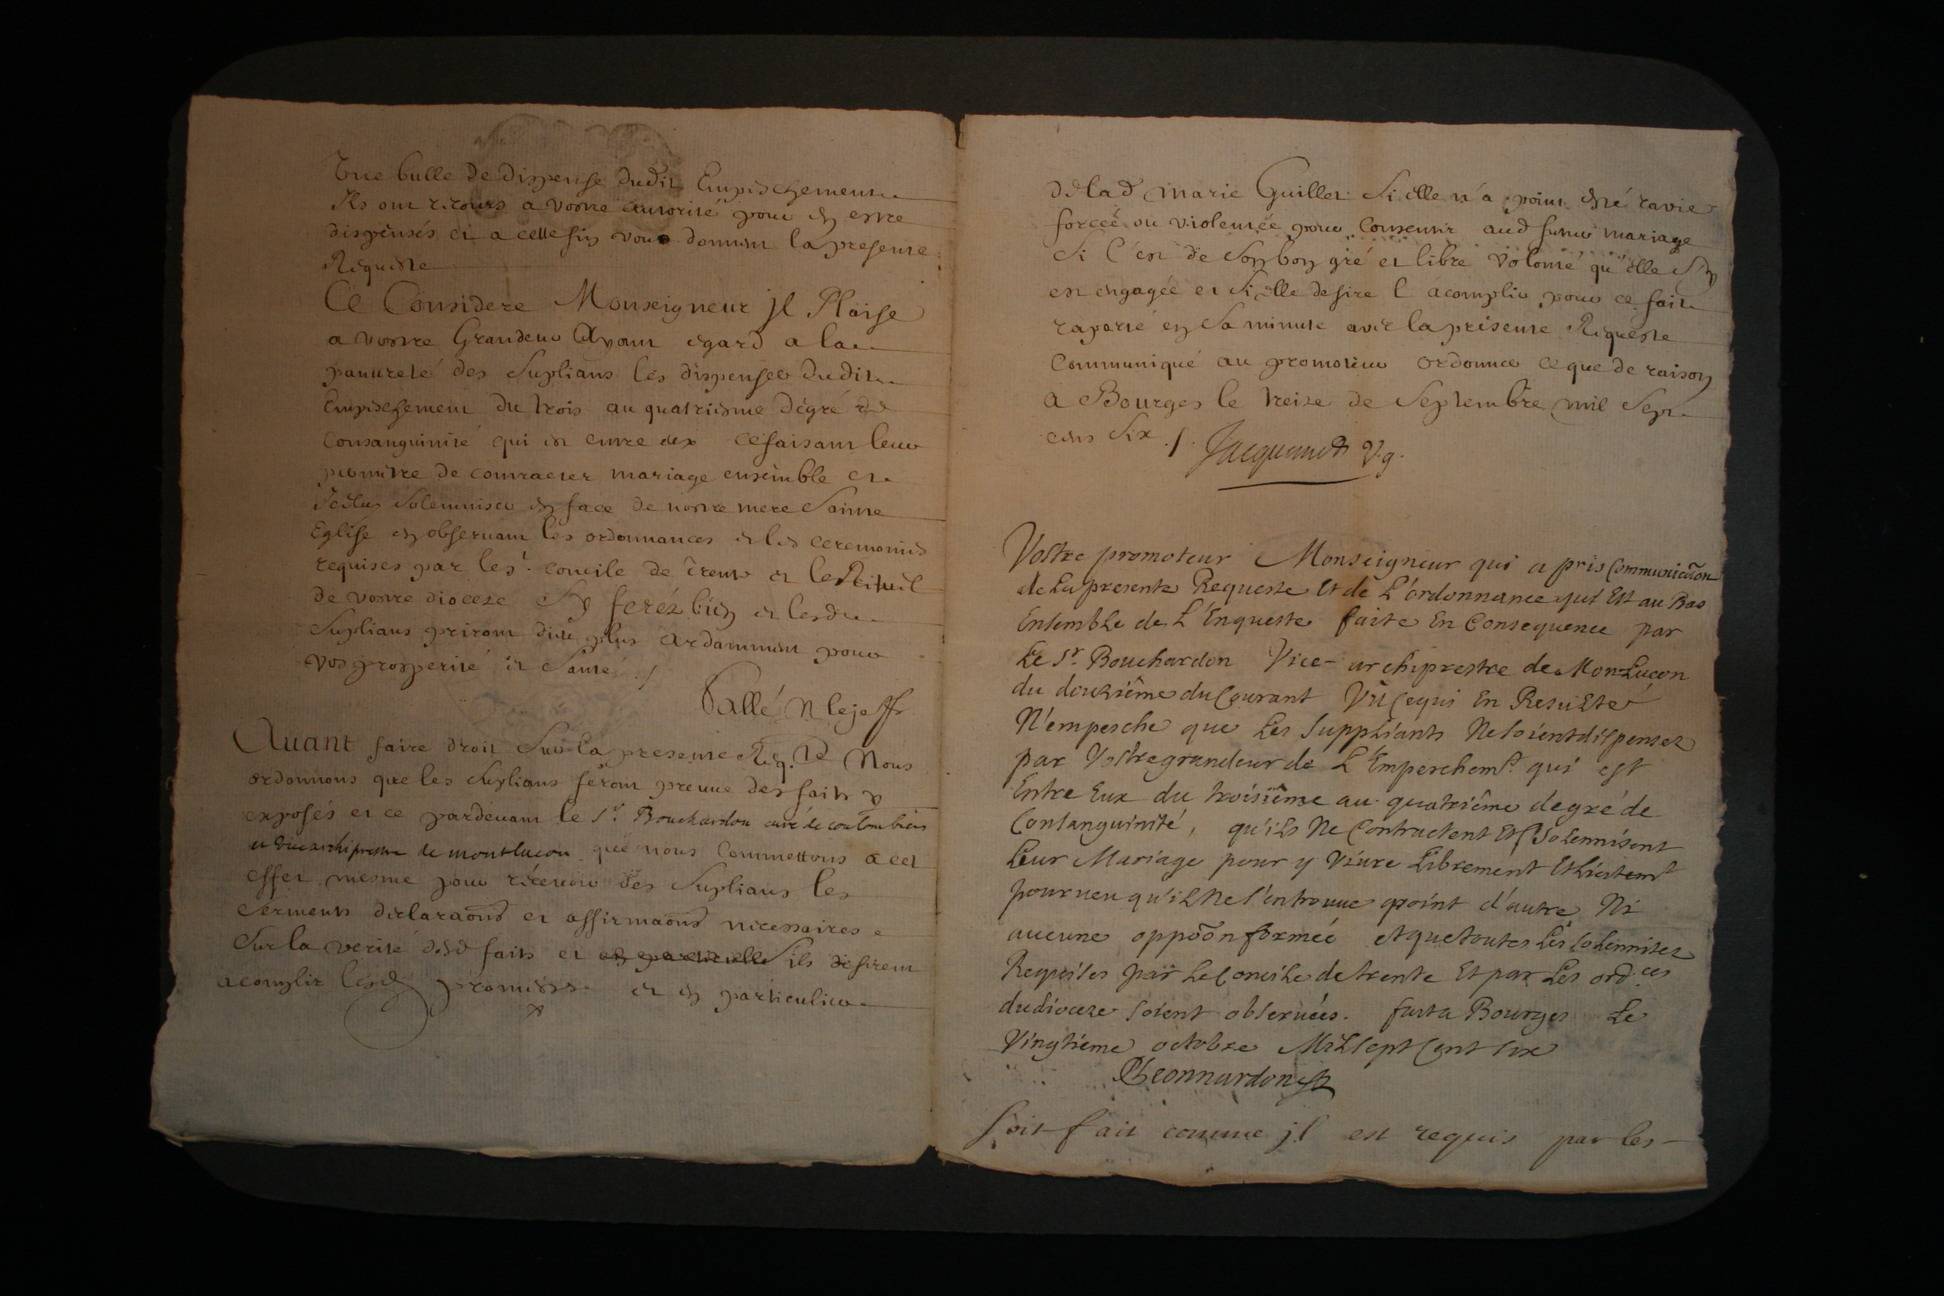 Une bulle de dispense dudit Empeschement
Ils ont recours a vostre autorité pour en estre
dispensés et a cette fin vous donnent la presente
Requeste
Ce Consideré Monseigneur jl Plaise
a vostre Grandeur Ayant egard a la
pauureté des Suplians les dispenser dudit
Empeschement du trois au quatriesme degré de
Consanguinité qui est entre eux ce faisant leur
permetre de contracter mariage ensemble et
Iceluy Solemniser en face de nostre mere Sainte
Eglise en obseruant les ordonnances et les ceremonies
requises par les concile de Trente et le Rituel
de vostre diocese Et ferés bien et lesd
Suplians priront dieu plus ardamment pour
vos prosperité et Santé
Sallé
Auant faire droit Sur la presente Reqte Nous
ordonnons que les Suplians feront preuue des faits y
exposés et ce pardeuant le Sr Bouchardon curé de coulombiers
et vice archiprestre de montlucon que nous Commettons a cet
effet mesme pour receuoir des Suplians les
serments declaraõns et affirmaõns necessaires
Sur la verité desd faits et en particulier Sils desirent
acomplir lesd promesses et en particulier
de lad Marie Guillet Si elle n'a point esté ravie
forcée ou violentée pour consentir aud futur mariage
Si C'est de Son bon gré et libre volonté qu'elle S'y
est engagée et Si elle desire l acomplir pour ce fait
raporté en Sa minute avec la presente Requeste
Communiqué au promoteur ordonner ce que de raison
A Bourges le treize de Septembre mil Sept
cens Six
Jacquemet V.g.
Vostre promoteur Monseigneur qui a pris Communicãon
de La presente Requeste Et de L'ordonnance qui Est au Bas
Ensemble de L'Enqueste faite En Consequence par
Le Sr. Bouchardon Vice-archiprestre de Monluçon
du douzième du Courant Vû ce qui En Resulte
N'empesche que Les Suppliants Ne soient dispensez
par Vostre grandeur de L'Emperchemt. qui est
Entre Eux du troisième au quatrième degré de
Consanguinité, qu'ils Ne Contractent Et Solennisent
Leur Mariage pour y Viure Librement Et Licitemt
pourueu qu'il Ne s'en trouue point d'autre Ni
aucune oppoõn formée et que toutes Les Solennitez
Requises par Le Concile de trente Et par Les ordces
du dioceze soient obseruées. fait a Bourges Le
Vingtième octobre Mil sept Cent six
Soit fait comme jl est requis par les